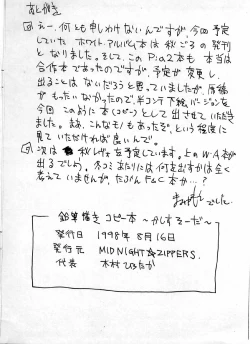 あとがき
えー、何とも申しわけないんですが、今回予定
していた ホワイトアルバム本は 秋ごろの発刊
となりました。そして、この Pia2本も 本当は
合作本であったのですが、予定が変更し、
出ることはないだろうと思っていましたが、原稿
がもったいなかったので、半コンテ下絵バージョンを
今回 このように本(コピー)として出させていただき
ました。まあ、こんなもんもあったな、という程度に
見ていただければ良いんで。
次は 秋レヴォを予定しています。上のW.A本が
出るでしょう。冬コミあたりには何を出すかは全く
考えていませんが、たぶんF&C本か…?
でした。
鉛筆描きコピー本 ~かしするーだ~
発行日 1998年8月16日
発行元 MIDNIGHT☆ZIPPERS.
代表 木村ひたか